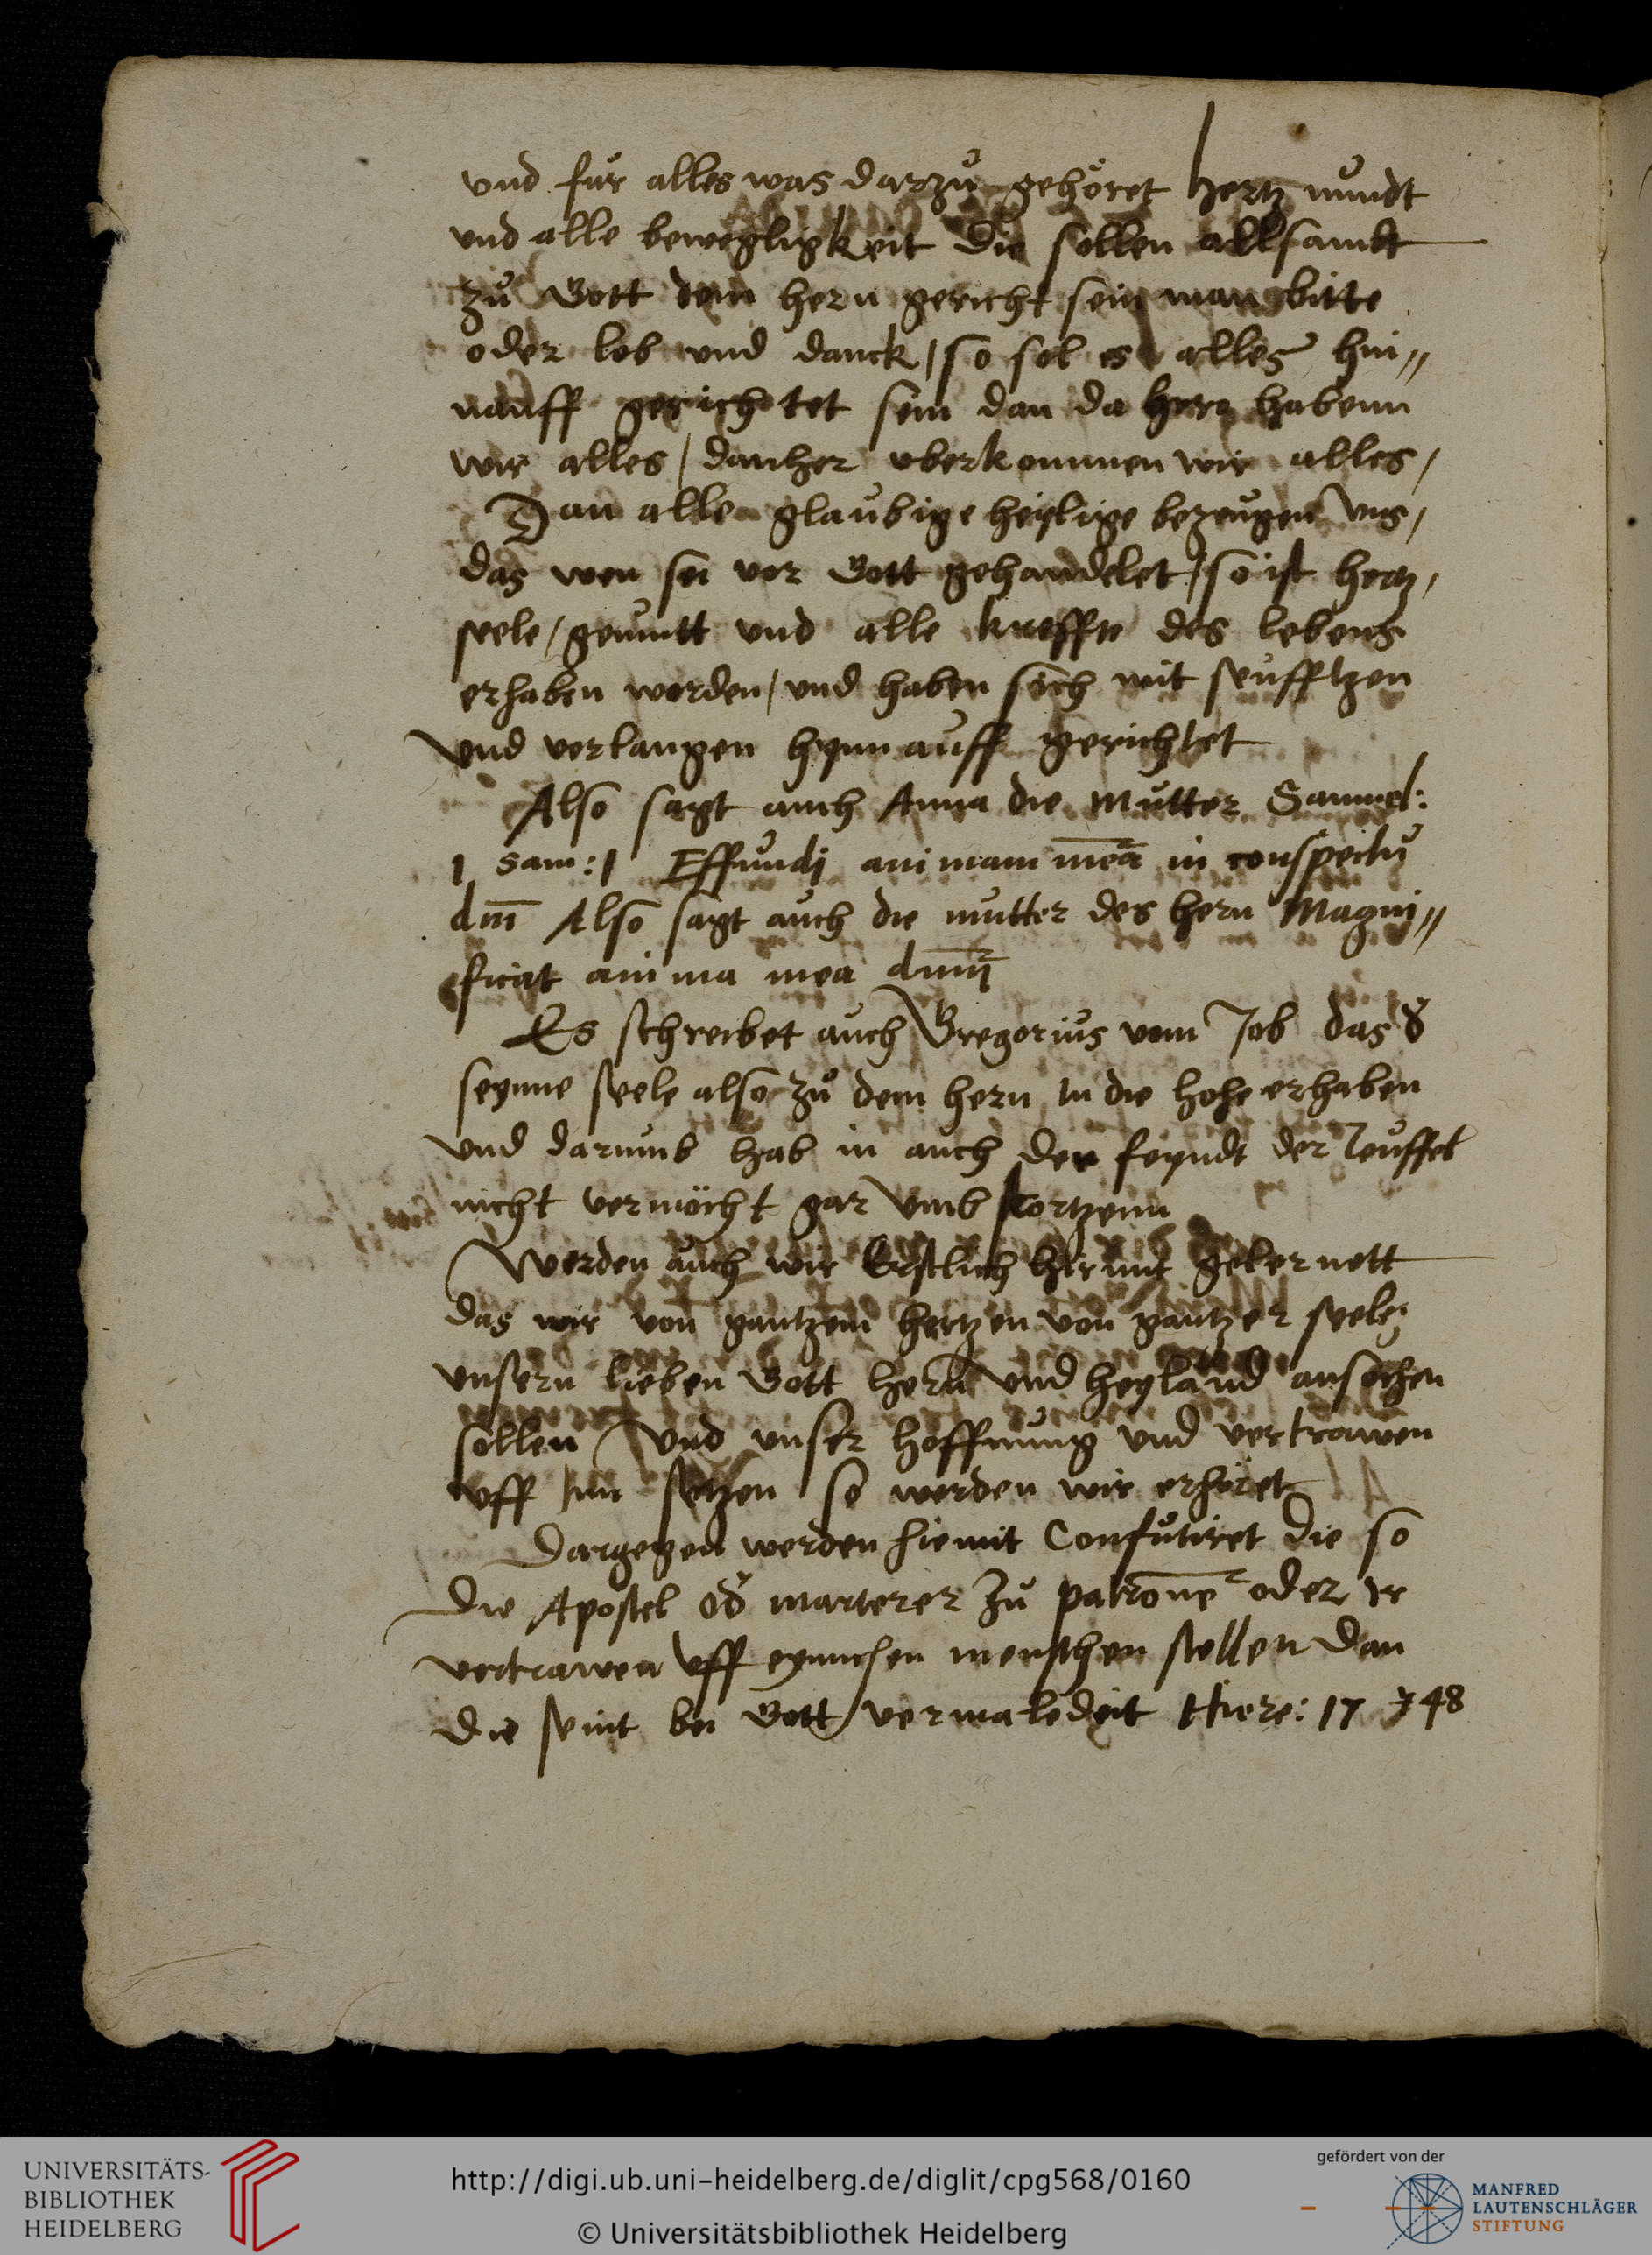 vnd für alles was darzů gehöret hertz mundt
vnd alle bewegligkeit die sollen allsambt
zů Gott dem hern gericht sein man bitte
oder lob vnd danck / so sol es alles hin〃
nauff gerichtet sein dan da her habenn
wir alles / danher vberkommen wir alles /
Dan alle glaubige heylige bezeugen vns /
das wen sei vor Gott gehandelet / so ist hertz /
seele / gemutt vnd alle kreffte des lebens
erhaben worden / vnd haben sich mit seufftzen
vnd verlangen hynnauff gerichtet
Also sagt auch Anna die Mutter Samuel:
1 Sam: 1 Effundj animam meā in conspectu
dni Also sagt auch die mutter des hern Magni〃
ficat anima mea dnm
Es schreibet auch Gregorius vom Job das d
seynne seele also zů dem hern in die hohe erhaben
vnd darumb hab in auch der feyndt der teuffel
nicht vermöcht gar vmb stortzenn
Werden auch wir Erstlich hirmit gelernett
das wir von gantzem hertzen von gantzer seele
vnsern lieben Gott hern vnd heyland ansechen
sollen Vnd vnser hoffnung vnd vertrawen
vff inn setzen so werden wir erhöret
Dargegen werden hiemit Confutiret die so
die Apostel od marterer zů patrone oder ir
vertrawen vff eynnichen menschen stellen dan
die seint bei Gott vermaledeit Hiere: 17 & 48
UNIVERSITÄTS-
BIBLIOTHEK
HEIDELBERG
http://digi.ub.uni-heidelberg.de/diglit/cpg568/0160
© Universitätsbibliothek Heidelberg
gefördert von der
MANFRED
LAUTENSCHLÄGER
STIFTUNG